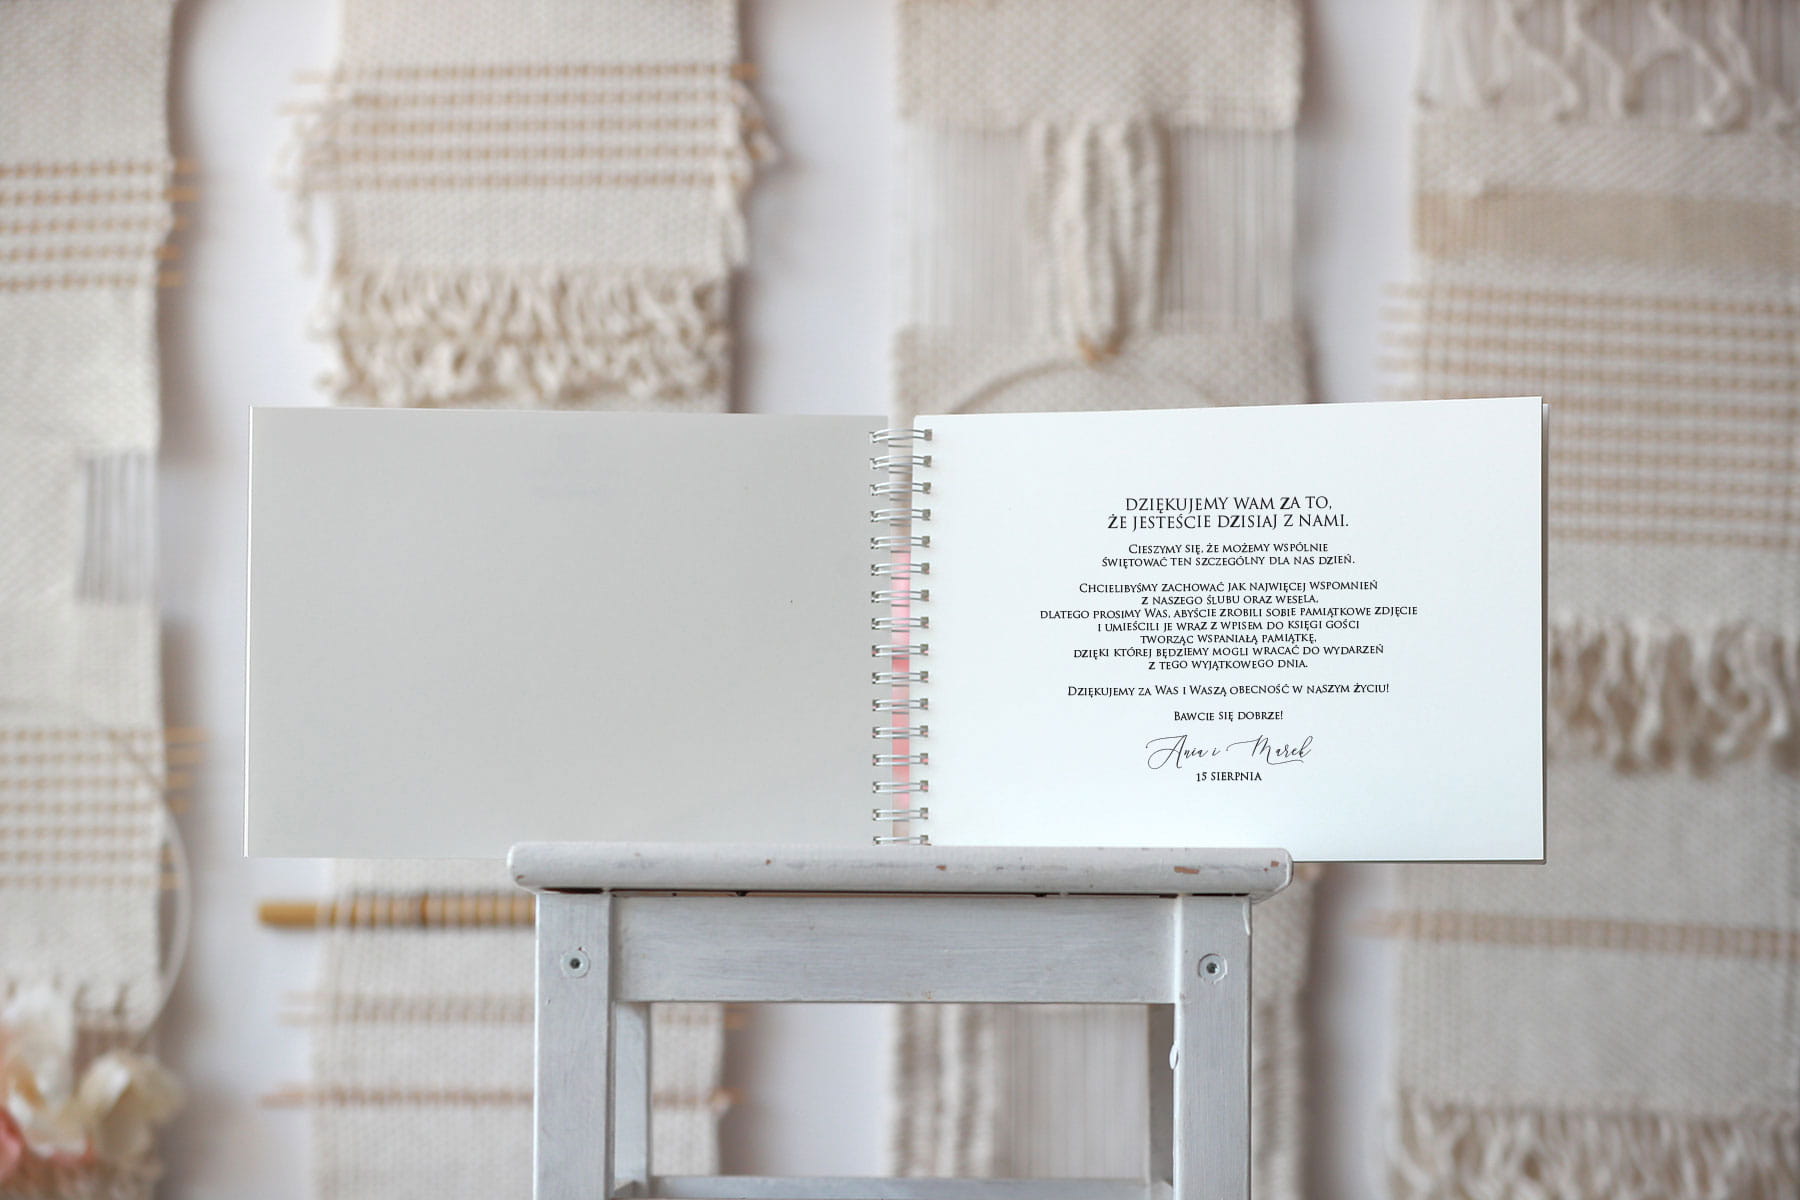 DZIĘKUJEMY WAM ZA TO,
ŻE JESTEŚCIE DZISIAJ Z NAMI.
Cieszymy się, że możemy wspólnie
świętować ten szczególny dla nas dzień.
Chcielibyśmy zachować jak najwięcej wspomnień
z naszego ślubu oraz wesela,
dlatego prosimy Was, abyście zrobili sobie pamiątkowe zdjęcie
i umieścili je wraz z wpisem do księgi gości
tworząc wspaniałą pamiątkę,
dzięki której będziemy mogli wracać do wydarzeń
z tego wyjątkowego dnia.
Dziękujemy za Was i Waszą obecność w naszym życiu!
Bawcie się dobrze!
Ania i Marek
15 SIERPNIA